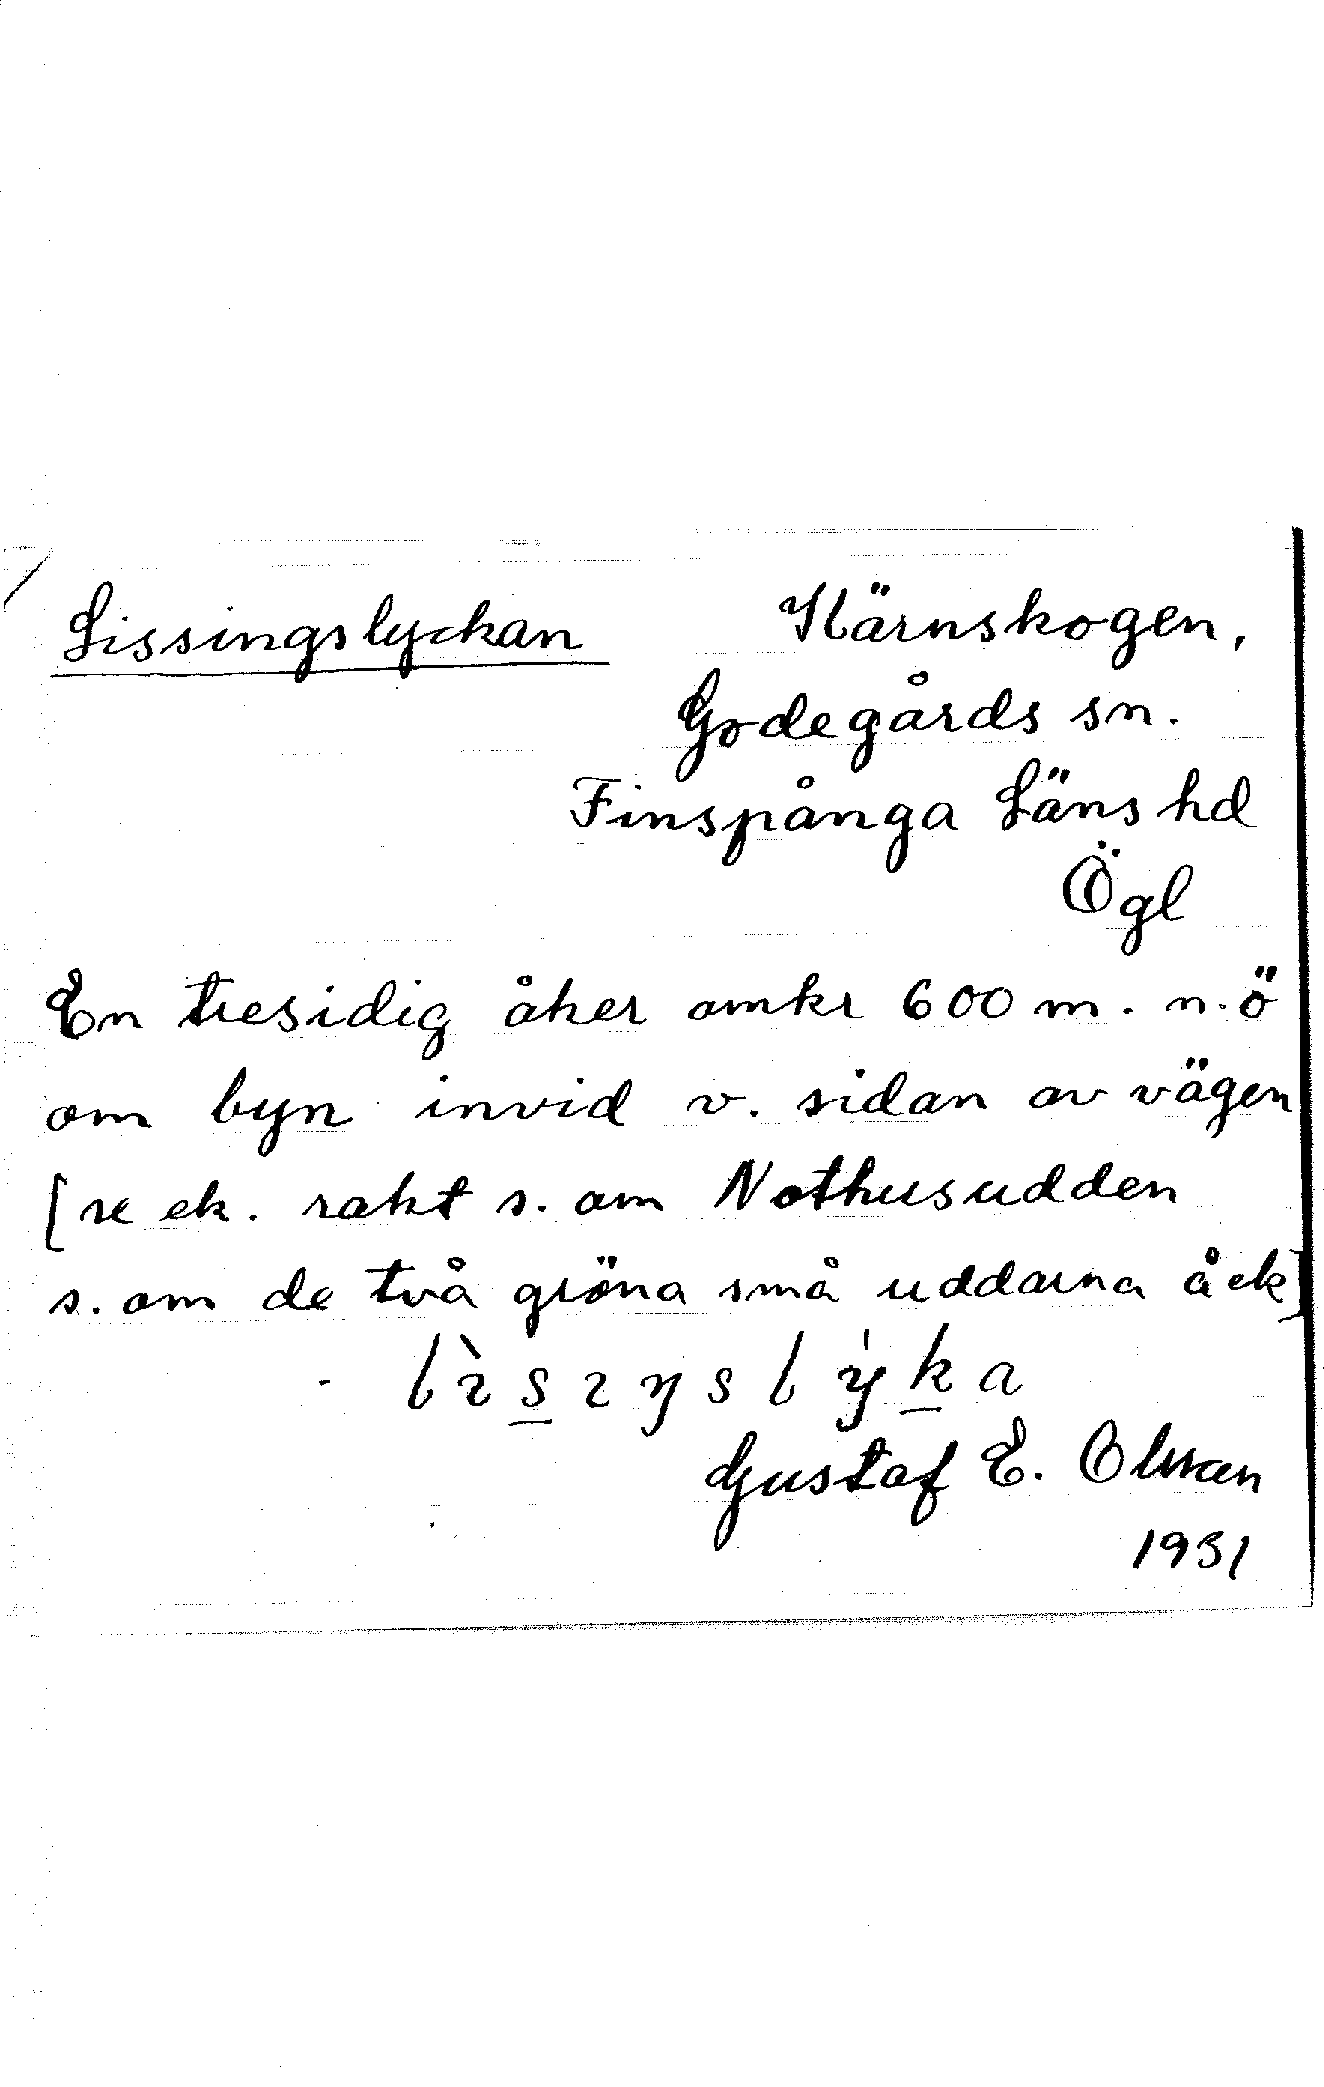 Lissingslyckan
Kärnskogen,
Godegårds sn.
Finspånga Läns hd
Ögl
En tresidig åker omkr 600 m. n.ö
om byn invid v. sidan av vägen
[se ek. rakt s. om Nothusudden
s. om de två gröna små uddarna å ek]
lìsɩŋslýka
Gustaf E. Olsson
1931